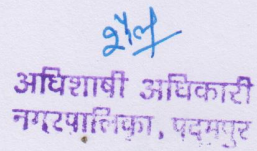 अधिशाषी अधिकारी
नगरपालिका, पदमपुर